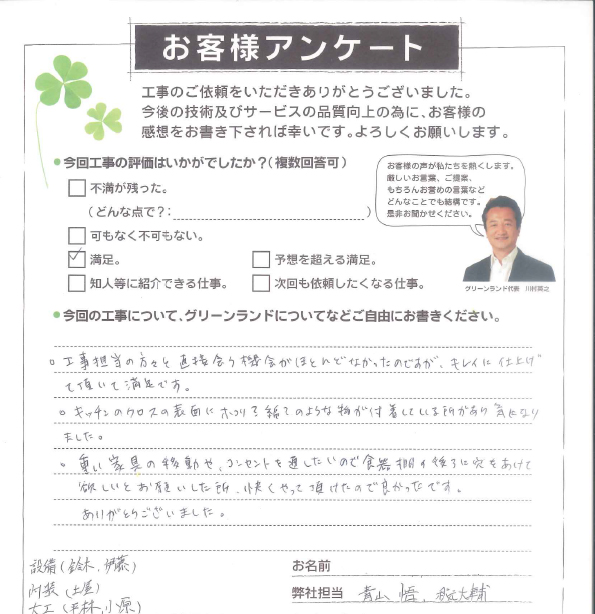 お客様アンケート
工事のご依頼をいただきありがとうございました。
今後の技術及びサービスの品質向上の為に、お客様の
感想をお書き下されば幸いです。よろしくお願いします。
●今回工事の評価はいかがでしたか？（複数回答可）
お客様の声が私たちを熱くします。
厳しいお言葉、ご提案、
もちろんお誉めの言葉など
どんなことでも結構です。
是非お聞かせください。
不満が残った。
（どんな点で？： ）
可もなく不可もない。
満足。 予想を超える満足。
知人等に紹介できる仕事。 次回も依頼したくなる仕事。
グリーンランド代表 川村英之
●今回の工事について、グリーンランドについてなどご自由にお書きください。
○工事担当の方々と直接会う機会がほとんどなかったのですが、キレイに仕上げ
て頂いて満足です。
○キッチンのクロスの表面にホコリ？綿？のような物が付着している所があり気になり
ました。
○重い家具の移動や、コンセントを通したいので食器棚の後ろに穴をあけて
欲しいとお願いした所、快くやって頂けたので良かったです。
ありがとうございました。
設備（鈴木、伊藤） お名前
内装（土屋） 弊社担当 青山 悟、
大工（ 小源）